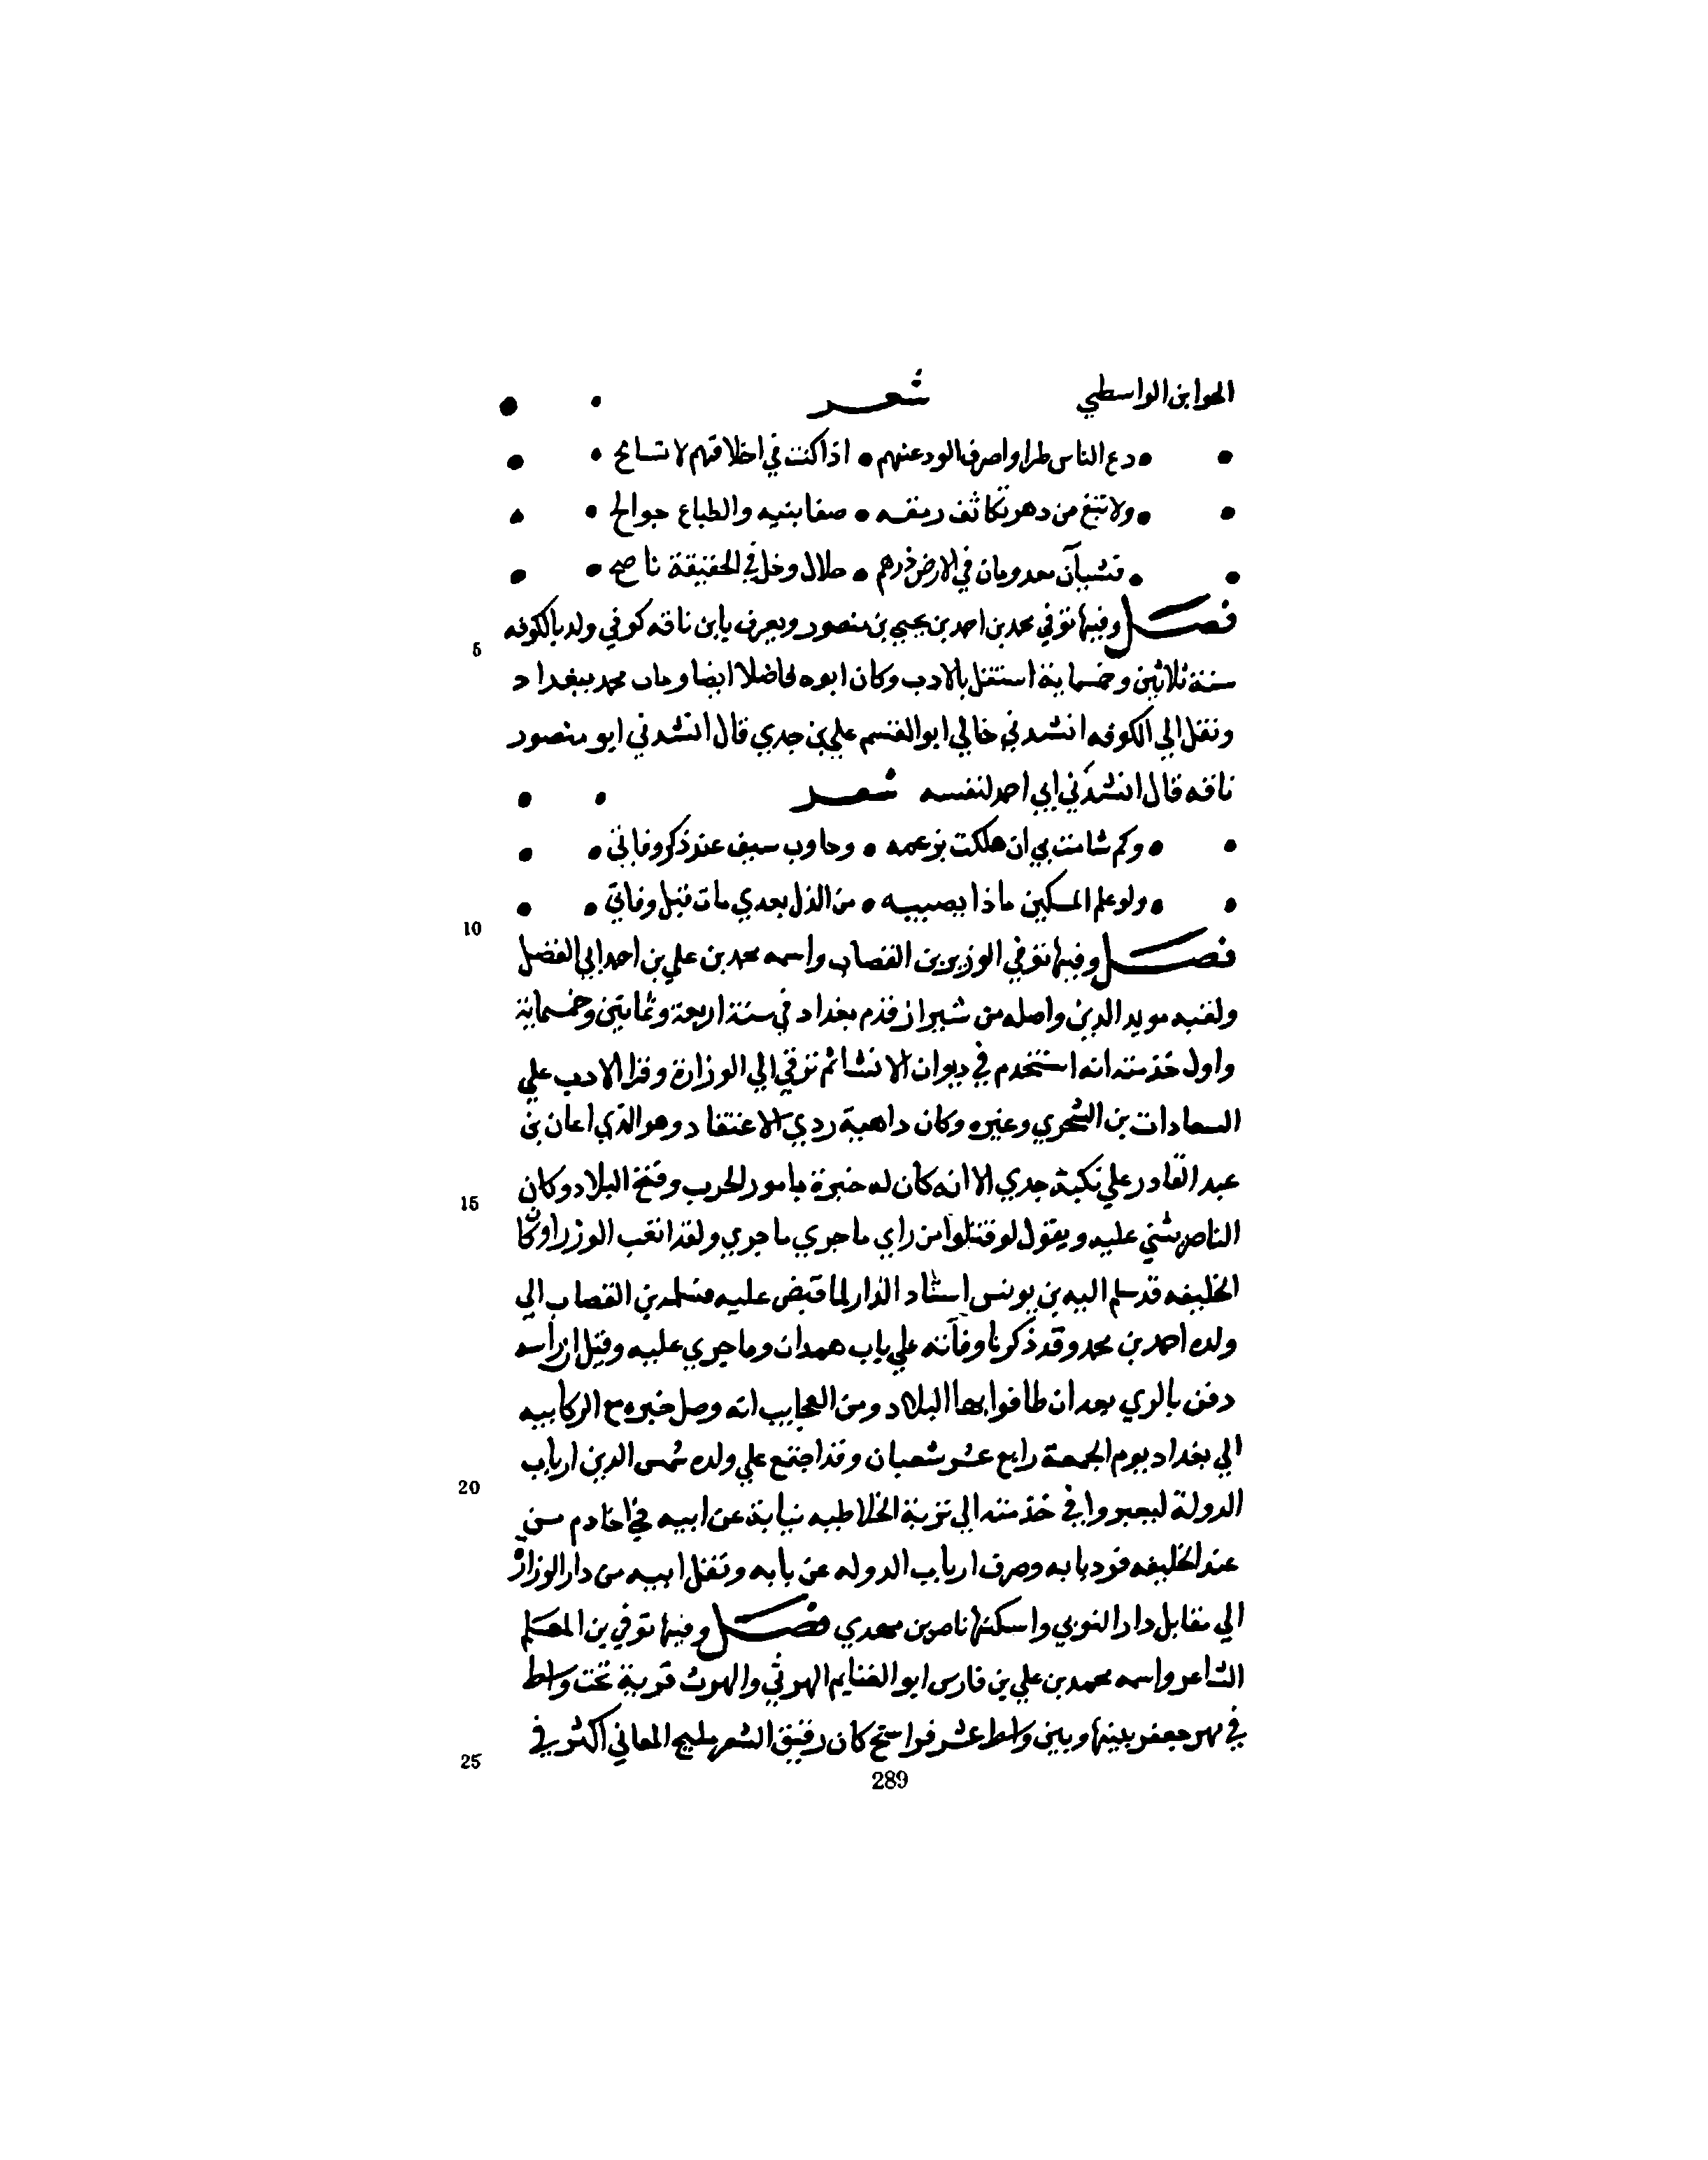 الهوا بن الواسطي شعر
دع الناس طرا واصرف الود عنهم اذا كنت في اخلاقهم لا تسامح
ولا تبغ من دهر تكاثف رنقه صفا بنيه والطباع جوالح
فشيآن معدومان في الارض درهم حلال وخل في الحقيقة ناصح
فصل وفيها توفي محمد بن احمد بن يحيي بن منصور ويعرف بابن ناقه كوفي ولد بالكوفه
5
سنة ثلاثين وخمسماية استقل بالادب وكان ابوه فاضلا ايضا ومات محمد ببغداد
ونقل الي الكوفه انشدني خالي ابو القسم علي بن جدي قال انشدني ابو منصور
ناقه قال انشدني ابي احمد لنفسه شعر
وكم شامت بي ان هلكت بزعمه وجاوب سيف عند ذكر وفاتي
ولو علم المسكين ماذا يصيبه من الذل بعدي مات قبل وفاتي
10
فصل وفيها توفي الوزير بن القصاب واسمه محمد بن علي بن احمد ابي الفضل
ولقبه مويد الدين واصله من شيراز قدم بغداد في سنة اربعة وثمانين وخمسماية
واول خدمته انه استخدم في ديوان الانشا ثم ترقي الي الوزارة وقرا الادب علي
السعادات بن الشجري وغيره وكان داهية ردي الاعتقاد وهو الذي اعان بن
عبد القادر علي نكبة جدي الا انه كان له خبرة بامور الحرب وفتح البلاد وكان
15
الناصر يثني عليه ويقول لو قبلوا من راي ما جري ما جري ولقد اتعب الوزرا وكان
الخليفه قد سلم اليه بن يونس استاد الدار لما قبض عليه فسلمه بن القصاب الي
ولده احمد بن محمد وقد ذكرنا وفاته علي باب همدان وما جري عليه وقيل ان راسه
دفن بالري بعد ان طافوا بها البلاد ومن العجايب انه وصل خبره مع الركابيه
الي بغداد يوم الجمعة رابع عشر شعبان وقد اجتمع علي ولده شمس الدين ارباب
20
الدولة ليعبروا في خدمته الي تربة الخلاطيه نيابة عن ابيه فجا خادم من
عند الخليفه فرد بابه وصرف ارباب الدوله عن بابه ونقل ابيه من دار الوزارة
الي مقابل دار النوبي واسكنها ناصر بن مهدي فصل وفيها توفي بن المعلم
الشاعر واسمه محمد بن علي بن فارس ابو الغنايم الهرثي والهرث قرية تحت واسط
في نهر جعفر بينها وبين واسط عشر فراسخ كان رقيق الشعر مليح المعاني اكثر في
25
289